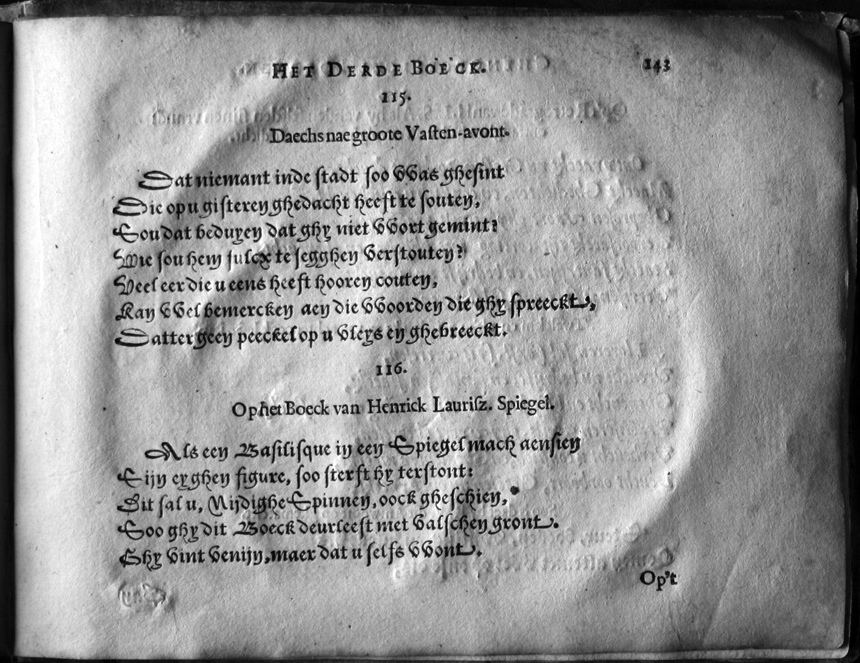 HET DERDE BOECK. 143
115.
Daechs nae groote Vasten-avont.
Dat niemant inde stadt soo VVas ghesint
Die op u gisteren ghedacht heeft te souten,
Sou dat beduyen dat ghy niet VVort gemint?
Wie sou hem sulcx te segghen Verstouten?
Veel eer die u eens heeft hooren couten,
Kan VVel bemercken aen die VVoorden die ghy spreeckt,
Datter geen peeckel op u Vleys en ghebreeckt.
116.
Op het Boeck van Henrick Laurisz. Spiegel.
Als een Basilisque in een Spiegel mach aensien
Sijn eyghen figure, soo sterft hy terstont:
Dit sal u, Nijdighe Spinnen, oock gheschien,
Soo ghy dit Boeck deurleest met Valschen gront.
Ghy Vint Venijn, maer dat u selfs VVont.
Op't